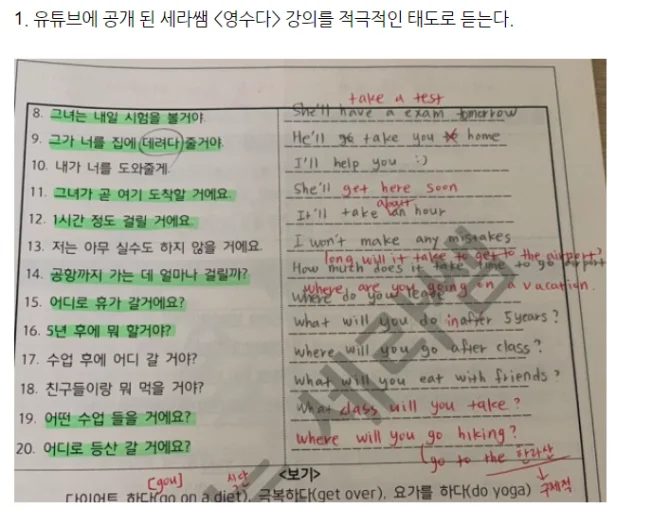 1. 유튜브에 공개 된 세라쌤 <영수다> 강의를 적극적인 태도로 듣는다.
take a test
8. 그녀는 내일 시험을 볼거야. She'll have a exam tomorrow
9. 그가 너를 집에 데려다 줄거야. He'll go take you to home
10. 내가 너를 도와줄게. I'll help you :)
11. 그녀가 곧 여기 도착할 거에요. She'll get here soon
about
12. 1시간 정도 걸릴 거에요. It'll take an hour
13. 저는 아무 실수도 하지 않을 거에요. I won't make any mistakes
long will it take to get to the airport?
14. 공항까지 가는 데 얼마나 걸릴까? How much does it take time to go airport
where are you going on a vacation.
15. 어디로 휴가 갈거에요? Where do you leave
16. 5년 후에 뭐 할거야? What will you do in after 5years?
17. 수업 후에 어디 갈 거야? where will you go after class?
18. 친구들이랑 뭐 먹을 거야? What will you eat with friends?
19. 어떤 수업 들을 거에요? What class will you take?
20. 어디로 등산 갈 거에요? where will you go hiking?
go to the 한라산
구체적
[gou] 시작 <보기>
다이어트 하다(go on a diet), 극복하다(get over), 요가를 하다(do yoga)
세라쌤